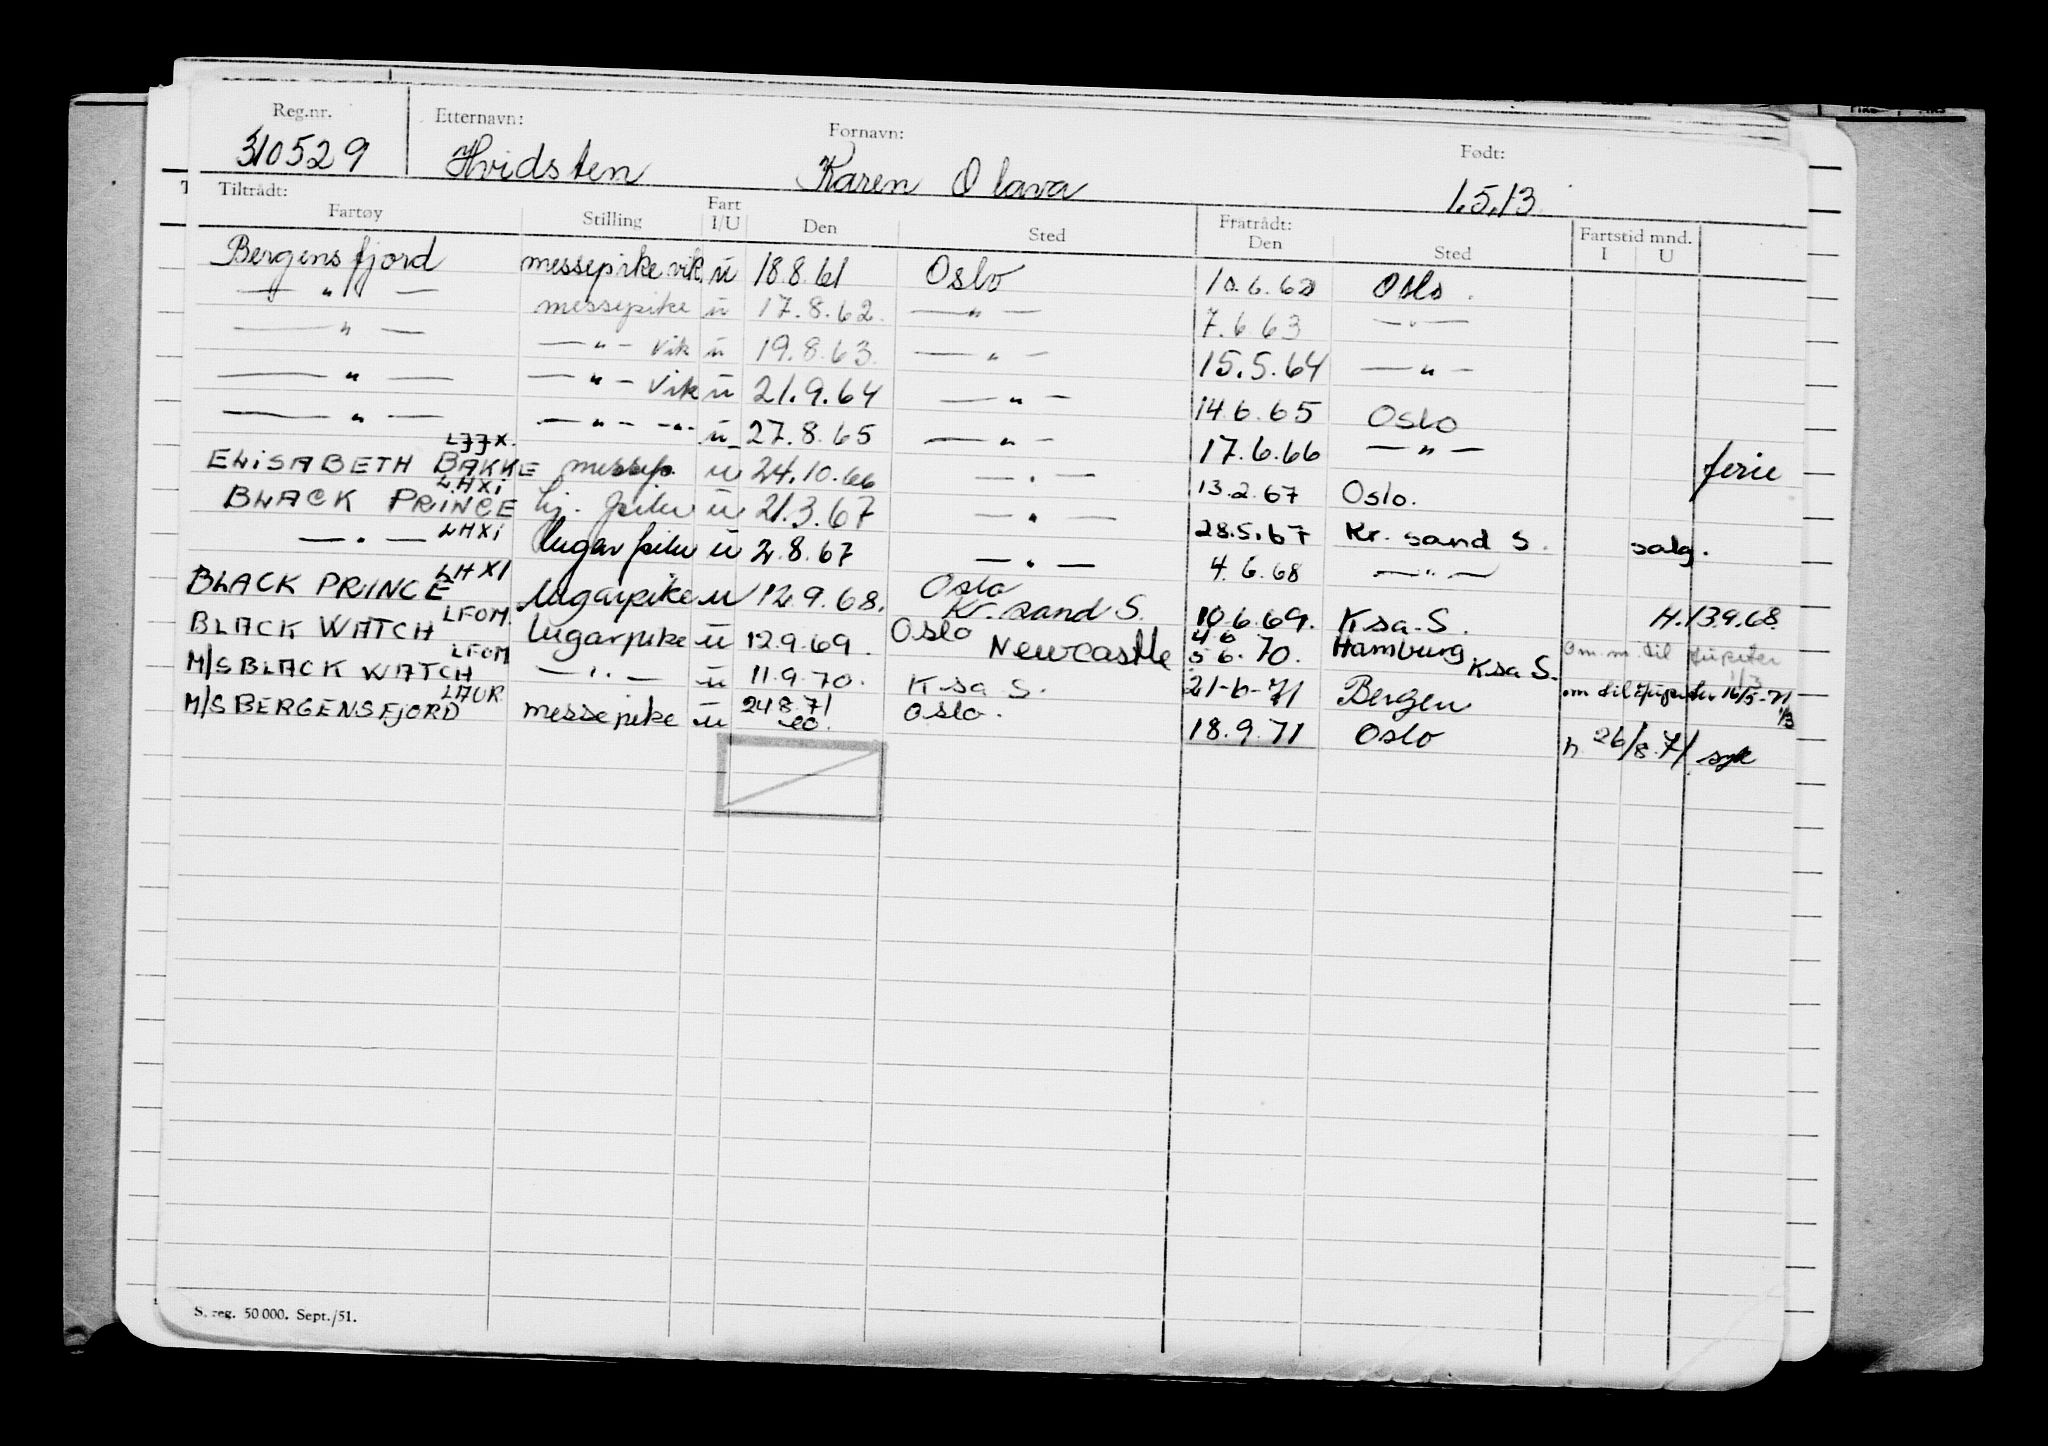 Reg.nr. Etternavn: Fornavn: Født:
310529 Hvidsten Karen Olava 1.5.13
Tiltrådt: Fratrådt: Fartstid mnd.
Fartøy Stilling Fart I/U Den Sted Den Sted I U
Bergensfjord messepike vik. u 18.8.61 Oslo 10.6.62 Oslo.
— " — messepike u 17.8.62. — " — 7.6.63 — " —
— " — — " — vik u 19.8.63. — " — 15.5.64 — " —
— " — — " — vik u 21.9.64 — " — 14.6.65 Oslo
— " — — " — -"- u 27.8.65 — " — 17.6.66 — " — ferie
LJJX.
ELISABETH BAKKE messep. u 24.10.66 — " — 13.2.67 Oslo.
LHXI
BLACK PRINCE u 21.3.67 — " — 28.5.67 Kr. sand S. salg.
— " — LHXI lugarpike u 2.8.67 — " — 4.6.68 — " —
LHXI Oslo
BLACK PRINCE lugarpike u 12.9.68. Kr. sand S. 10.6.69. Ksa. S. H. 13.9.68.
LFOM. Oslo 4.6
BLACK WATCH lugarpike u 12.9.69. Newcastle 5.6.70. Hamburg Ksa S. om.m. til Jupiter 1/3
LFOM
M/S BLACK WATCH — " — u 11.9.70. Ksa S. 21-6-71 Bergen om til Jupiter 16/5-71 1/3
LAOR
M/S BERGENSFJORD messepike u 24.8.71 Oslo. 18.9.71 Oslo h. 26/8.71 syk
S. reg. 50 000. Sept./51.